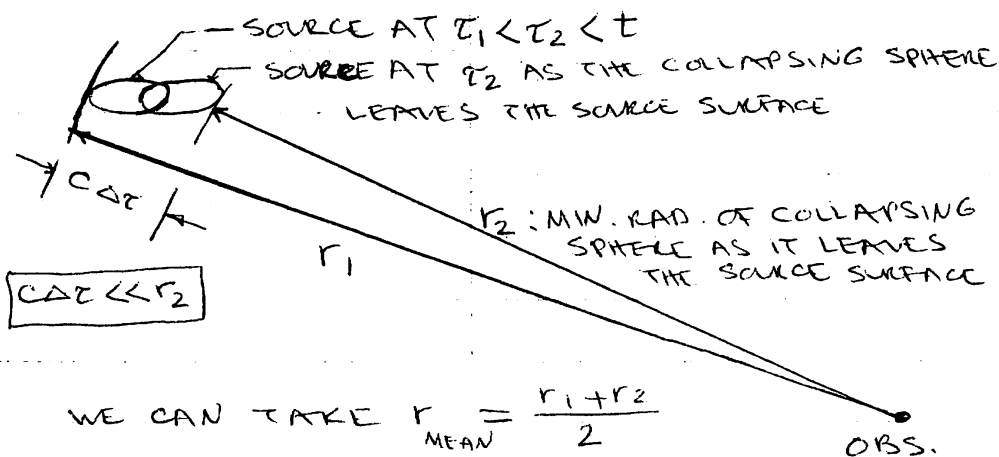 SOURCE AT τ₁ < τ₂ < t
SOURCE AT τ₂ AS THE COLLAPSING SPHERE
LEAVES THE SOURCE SURFACE
CΔτ
r₁
r₂ : MIN. RAD. OF COLLAPSING
SPHERE AS IT LEAVES
THE SOURCE SURFACE
CΔτ << r₂
WE CAN TAKE r_MEAN = (r₁ + r₂)/2
OBS.